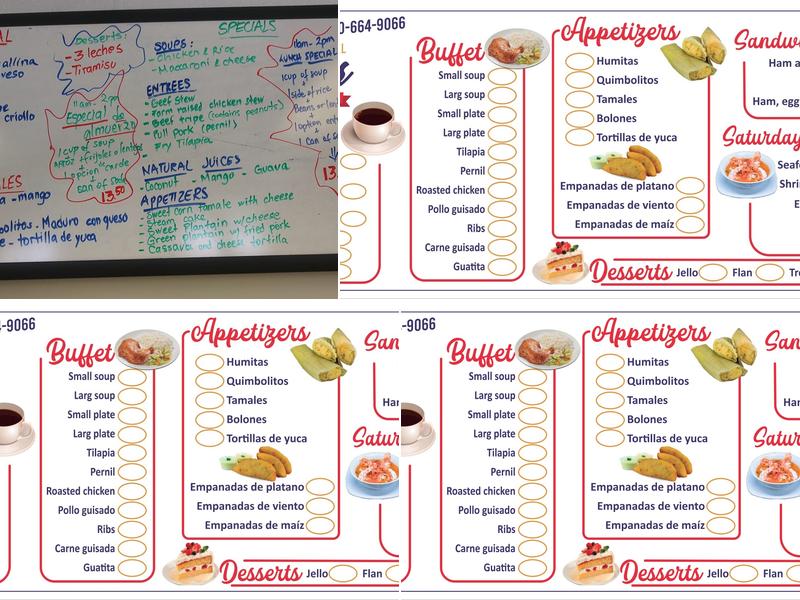 SPECIALS
Desserts:
- 3 leches
- Tiramisu
allina
ueso
criollo
11am - 2pm
Especial de
almuerzo
1 cup of soup
1 opcion
Can of Soda
13.50
a - mango
bolitos - Maduro con queso
e - tortilla de yuca
SOUPS:
- Chicken & Rice
- Macaroni & cheese
ENTREES
- Beef Stew
- Farm raised chicken stew
- Beef tripe (contains peanuts)
- Pull Pork (pernil)
- Fry Tilapia
NATURAL JUICES
- Coconut - Mango - Guava
APPETIZERS
- Sweet corn tamale with cheese
- Steam cake
- Sweet Plantain w/cheese
- Green plantain w/ fried pork
- Cassava and cheese tortilla
11am - 2pm
LUNCH SPECIAL
1 cup of soup
1 side of rice
Beans or len
1 option
1 Can of S
13.
0-664-9066
Buffet
Small soup
Larg soup
Small plate
Larg plate
Tilapia
Pernil
Roasted chicken
Pollo guisado
Ribs
Carne guisada
Guatita
Appetizers
Humitas
Quimbolitos
Tamales
Bolones
Tortillas de yuca
Empanadas de platano
Empanadas de viento
Empanadas de maíz
Desserts Jello Flan Tre
Sandw
Ham a
Ham, egg
Saturday
Seaf
Shri
E
4-9066
Buffet
Small soup
Larg soup
Small plate
Larg plate
Tilapia
Pernil
Roasted chicken
Pollo guisado
Ribs
Carne guisada
Guatita
Appetizers
Humitas
Quimbolitos
Tamales
Bolones
Tortillas de yuca
Empanadas de platano
Empanadas de viento
Empanadas de maíz
Desserts Jello Flan
San
Han
Satur
-9066
Buffet
Small soup
Larg soup
Small plate
Larg plate
Tilapia
Pernil
Roasted chicken
Pollo guisado
Ribs
Carne guisada
Guatita
Appetizers
Humitas
Quimbolitos
Tamales
Bolones
Tortillas de yuca
Empanadas de platano
Empanadas de viento
Empanadas de maíz
Desserts Jello Flan
San
Ham
Satur